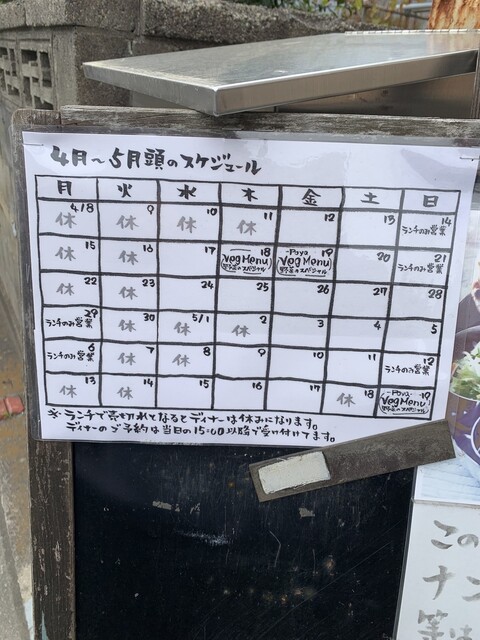 4月～5月頭のスケジュール
月 火 水 木 金 土 日
4/8 休 9 休 10 休 11 休 12 13 14 ランチのみ営業
15 休 16 休 17 18 Veg Menu 野菜のスペシャル 19 -Poya- Veg Menu 野菜のスペシャル 20 21 ランチのみ営業
22 休 23 休 24 25 26 27 28
29 ランチのみ営業 30 休 5/1 休 2 休 3 4 5
6 ランチのみ営業 7 休 8 休 9 10 11 12 ランチのみ営業
13 休 14 休 15 16 17 18 休 19 -Poya- Veg Menu 野菜のスペシャル
※ランチで売切れてなるとディナーは休みになります。
ディナーのご予約は当日の15:00以降で受け付けてます。
この
ナン
等は